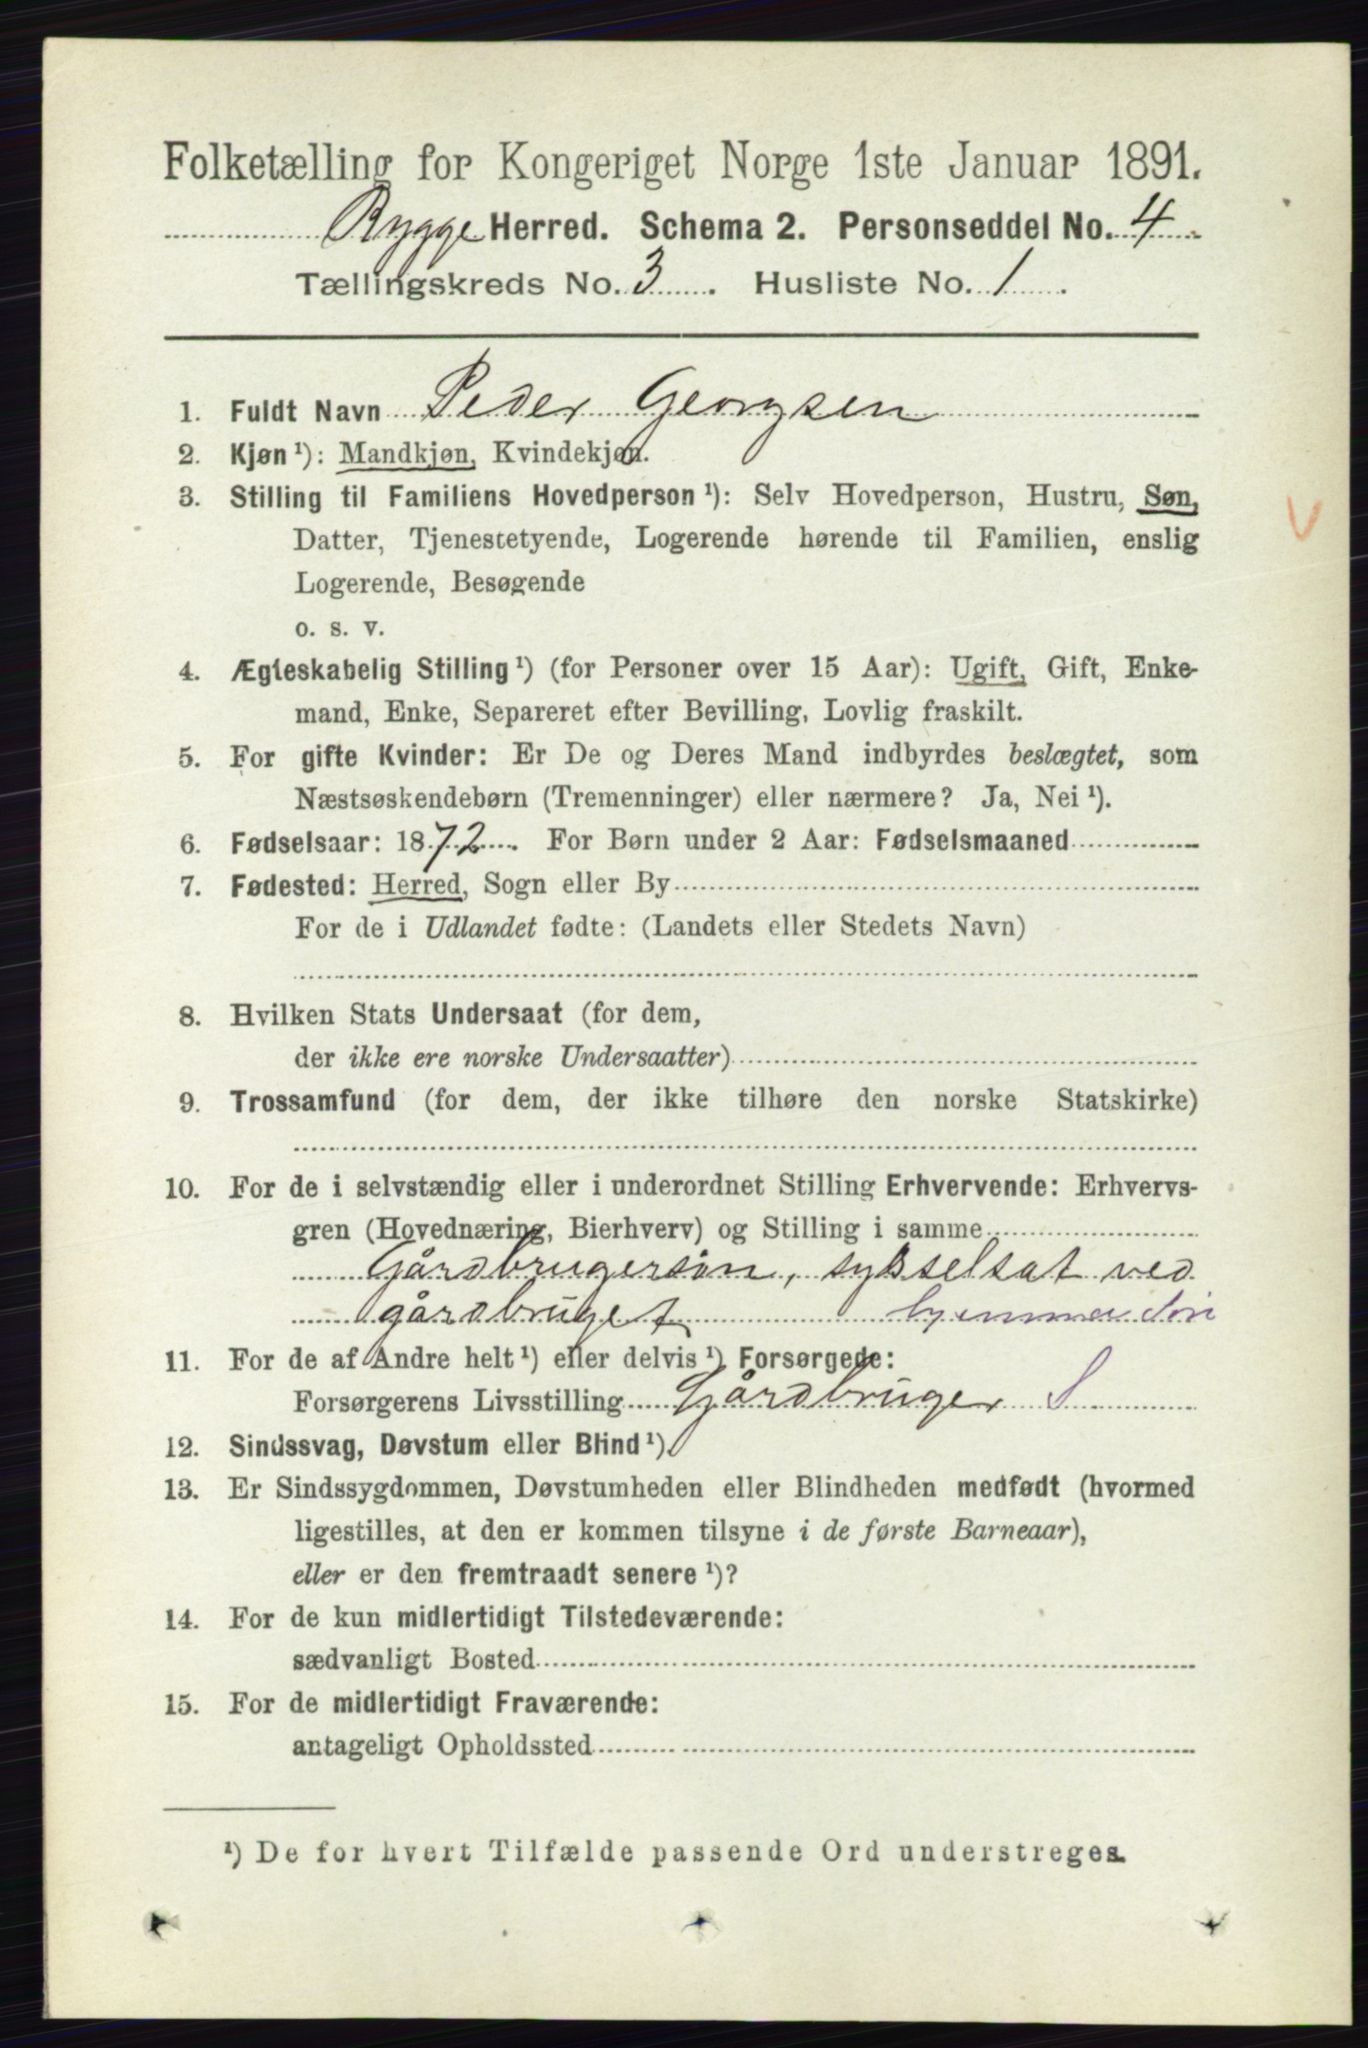 Folketælling for Kongeriget Norge 1ste Januar 1891.
Rygge Herred. Schema 2. Personseddel No. 4.
Tællingskreds No. 3. Husliste No. 1.
1. Fuldt Navn Peder Georgsen
2. Kjøn ¹): Mandkjøn, Kvindekjøn.
3. Stilling til Familiens Hovedperson ¹): Selv Hovedperson, Hustru, Søn,
Datter, Tjenestetyende, Logerende hørende til Familien, enslig
Logerende, Besøgende
o. s. v.
4. Ægteskabelig Stilling ¹) (for Personer over 15 Aar): Ugift, Gift, Enke-
mand, Enke, Separeret efter Bevilling, Lovlig fraskilt.
5. For gifte Kvinder: Er De og Deres Mand indbyrdes beslægtet, som
Næstsøskendebørn (Tremenninger) eller nærmere? Ja, Nei ¹).
6. Fødselsaar: 1872. For Børn under 2 Aar: Fødselsmaaned
7. Fødested: Herred, Sogn eller By
For de i Udlandet fødte: (Landets eller Stedets Navn)
8. Hvilken Stats Undersaat (for dem,
der ikke ere norske Undersaatter)
9. Trossamfund (for dem, der ikke tilhøre den norske Statskirke)
10. For de i selvstændig eller i underordnet Stilling Erhvervende: Erhvervs-
gren (Hovednæring, Bierhverv) og Stilling i samme
Gårdbrugersøn, sysselsat ved
gårdbruget
11. For de af Andre helt ¹) eller delvis ¹) Forsørgede:
Forsørgerens Livsstilling Gårdbruger S
12. Sindssvag, Døvstum eller Blind ¹).
13. Er Sindssygdommen, Døvstumheden eller Blindheden medfødt (hvormed
ligestilles, at den er kommen tilsyne i de første Barneaar),
eller er den fremtraadt senere ¹)?
14. For de kun midlertidigt Tilstedeværende:
sædvanligt Bosted
15. For de midlertidigt Fraværende:
antageligt Opholdssted
¹) De for hvert Tilfælde passende Ord understreges.